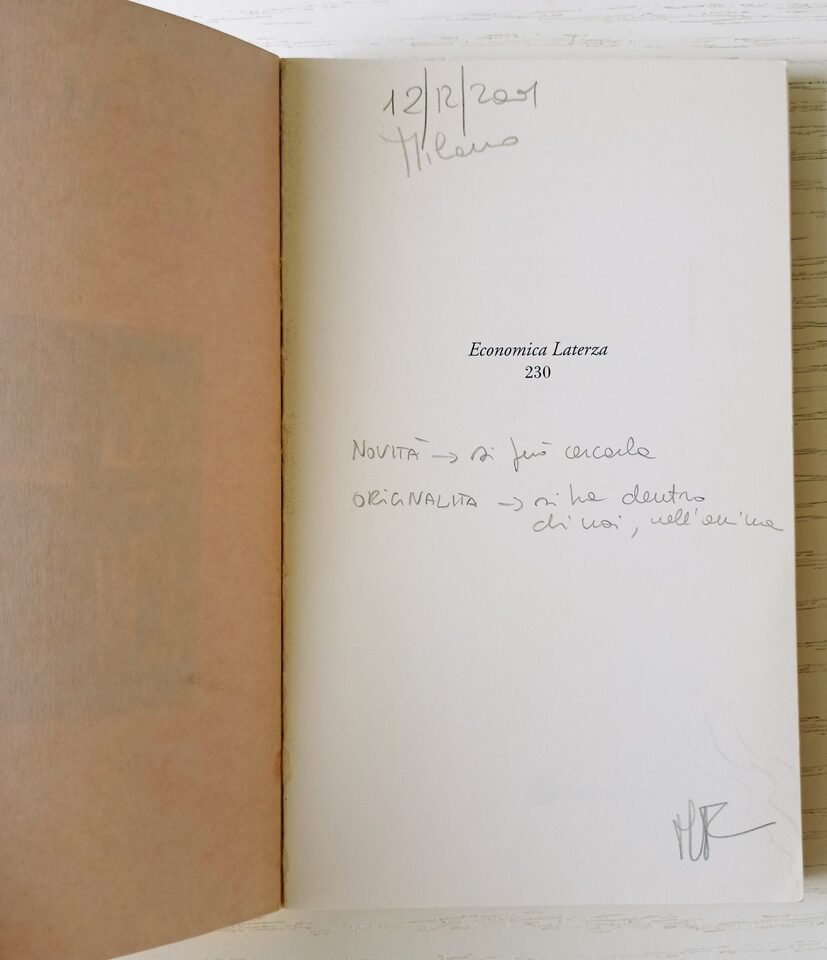 12/12/2001
Milano
Economica Laterza
230
NOVITÀ → si può cercarla
ORIGINALITA → si ha dentro
di noi, nell'anima